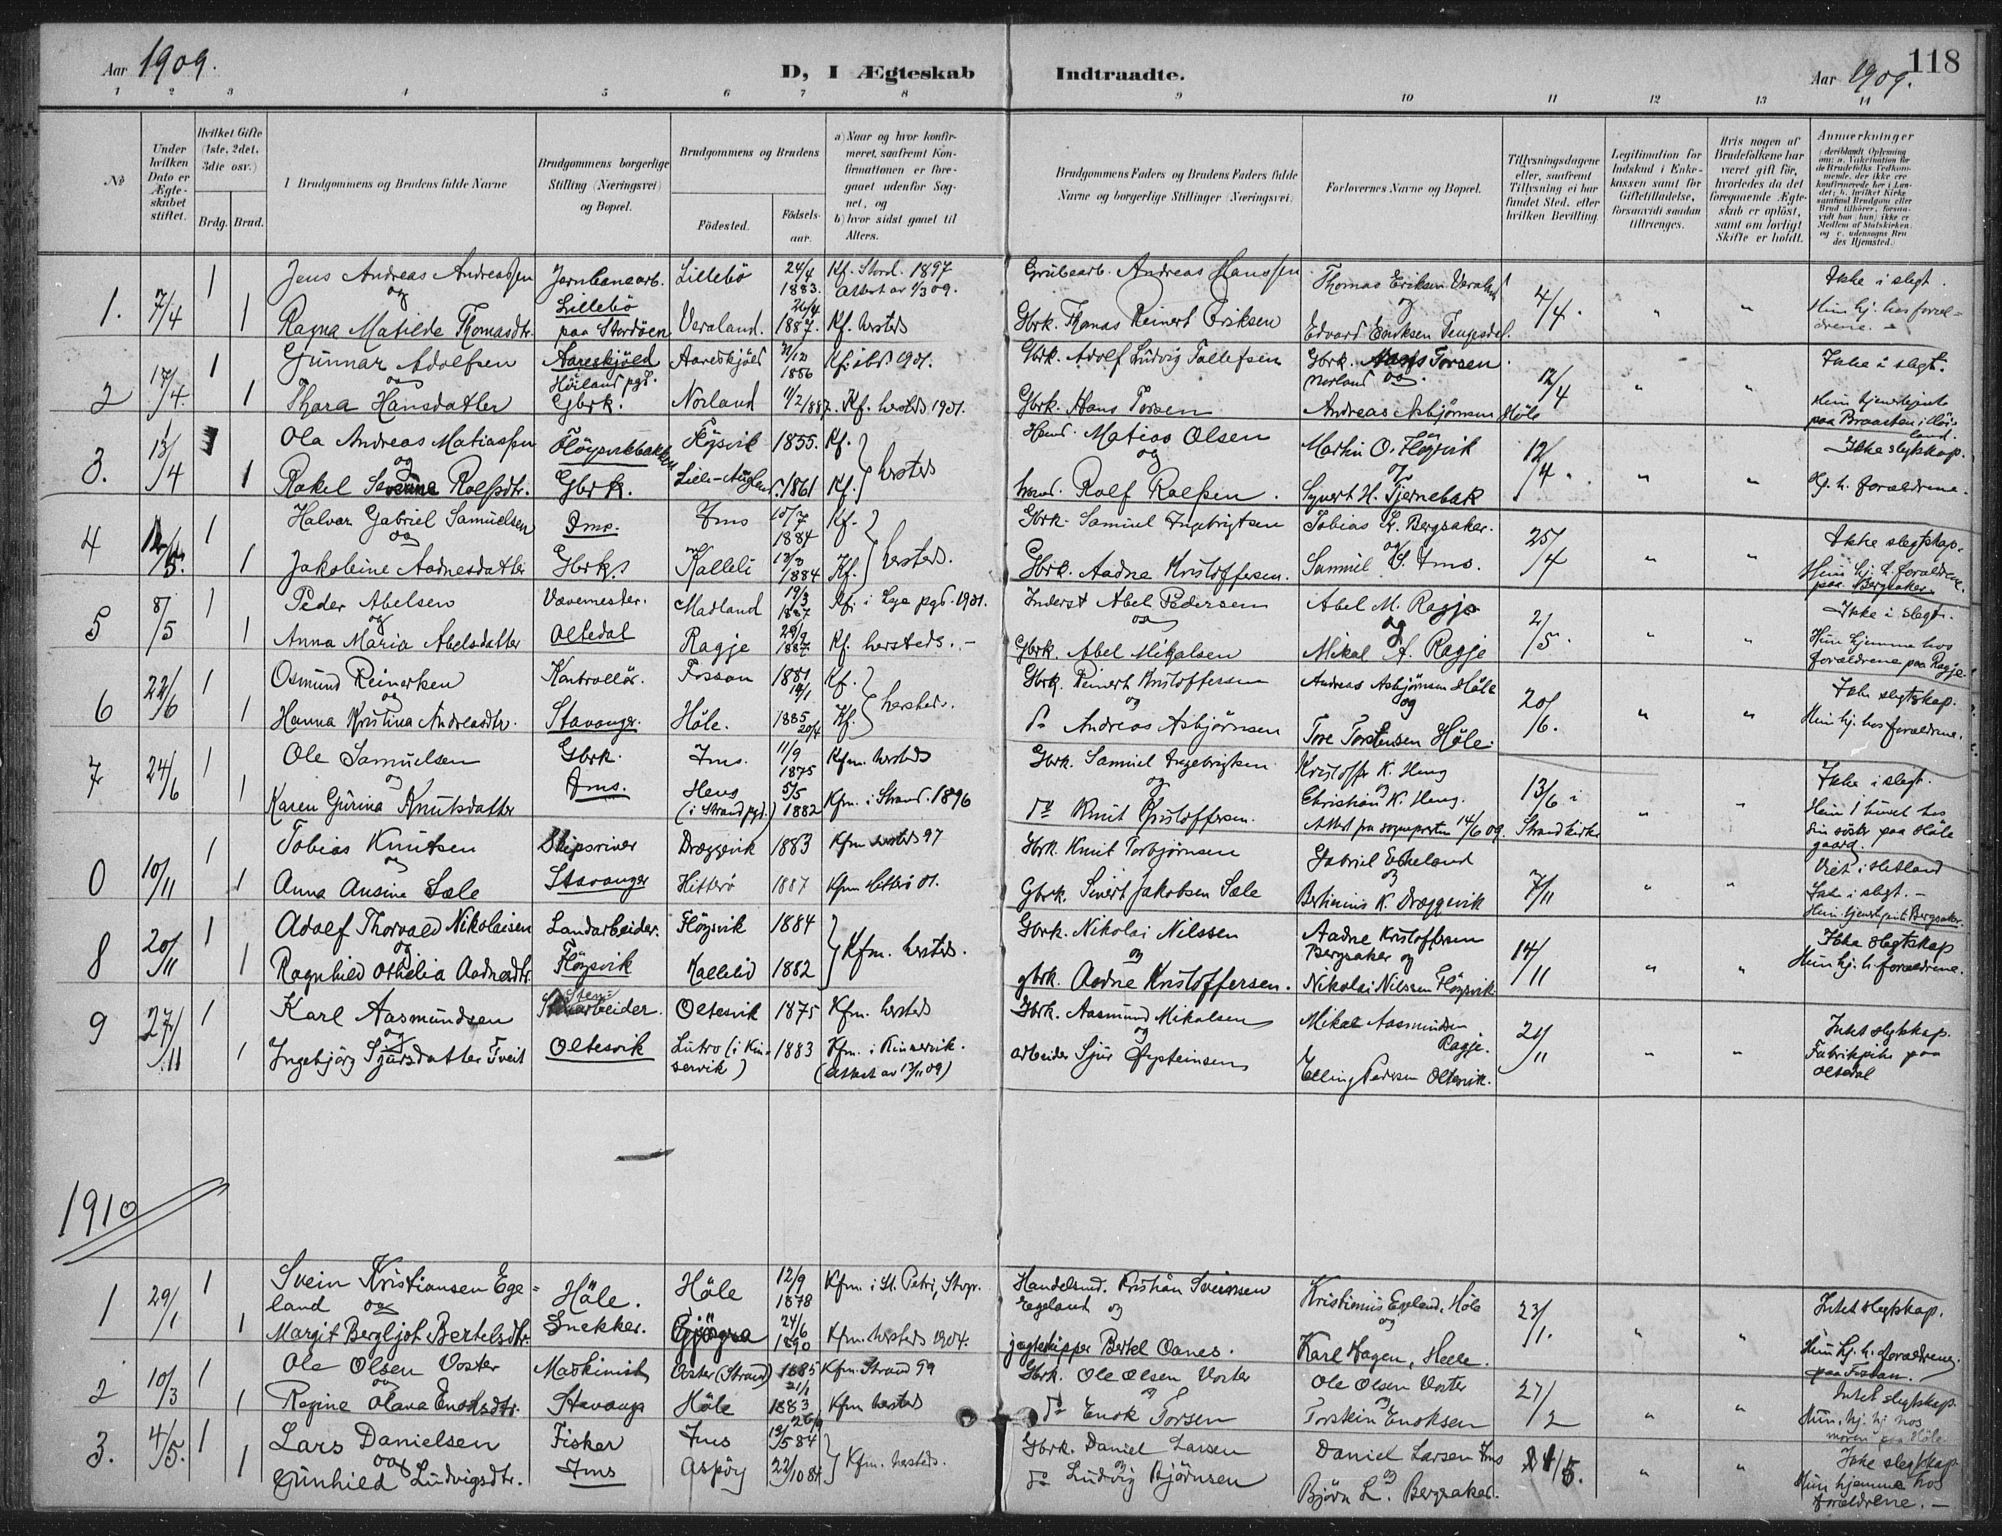 Aar 1909.
D, I Ægteskab Indtraadte.
Aar 1909.
118
1 2 3 4 5 6 7 8 9 10 11 12 13 14
№
Under hvilken Dato er Ægteskabet stiftet.
Hvilket Gifte (1ste, 2det, 3die osv.)
Brdg. Brud.
Brudgommens og Brudens fulde Navne
Brudgommens borgerlige Stilling (Næringsvei) og Bopæl.
Brudgommens og Brudens
Födested.
Födselsaar.
a) Naar og hvor konfirmeret, saafremt Konfirmationen er foregaaet udenfor Sognet, og
b) hvor sidst gaaet til Alters.
Brudgommens Faders og Brudens Faders fulde Navne og borgerlige Stillinger (Næringsvei)
Forlovernes Navne og Bopæl.
Tillysningsdagene eller, saafremt Tillysning ei har fundet Sted, efter hvilken Bevilling.
Legitimation for Indskud i Enkekassen samt for Giftetilladelse, forsaavidt saadan tiltrænges.
Hvis nogen af Brudefolkene har været gift för, hvorledes da det foregaaende Ægteskab er oplöst, samt om lovligt Skifte er holdt.
Anmærkninger
1. 7/4 1 Jens Andreas Andreassen Jernbanearb. Lillebö 24/4 1883. Kf. Stord. 1897 Attest av 1/3 09. Grubearb. Andreas Hanssen Thomas Eriksen Veraland 4/4 " " Ikke i slegt.
og Lillebö og
1 Ragna Matilde Thomasdtr. paa Stordöen Veraland. 26/4 1887. Kf. hersteds Gbrk. Thomas Reinert Eriksen Edvard Eriksen Tengesdal. Hun hj. hos forældrene.
2 17/4. 1 Gunnar Adolfsen Aareskjöld Aareskjöld 1886 Kf. 1901. Gbrk. Adolf Ludvig Tallefsen Gbrk. Hans Torsen Norland og 12/4 " " Ikke i slegt.
og Höiland pgd.
1 Thora Hansdatter Gbrk. Norland 11/2 1887. Kf. hersteds 1901. Gbrk. Hans Torsen Andreas Asbjörnsen Höle Hun tjenestepike paa Braasten i Höiland.
3. 13/4 1 Ola Andreas Matiassen Flöysvikbakken Flöysvik 1855. Kf. Matias Olsen Martin O. Flöysvik 12/4 " " Ikke slegtskap.
og hersteds og og
1 Rakel Severine Rolfsdtr. Gbrk. 1861 Kf. Rolf Rolfsen. Syvert H. Tjernebak Hj. h. forældrene.
4 12/5. 1 Halvar Gabriel Samuelsen Ims. Ims 10/7 1884 Kf. Gbrk. Samuel Ingebrigtsen Tobias Bergsaker. 25/4 " " Ikke slegtskap.
og hersteds. og
1 Jakobine Aadnesdatter Gbrk. Kalleli 1884 Kf. Gbrk. Aadne Kristoffersen. Samuel Ims. Hun hj. h. forældrene. paa Bergsaker.
5 8/5 1 Peder Abelsen Vævemester. Madland 19/3 1887 Kf. i Lye pgd. 1901. Inderst Abel Pedersen Abel M. Ragje 2/5. " " Ikke i slegt.
og og og
1 Anna Maria Abelsdatter Oltedal Ragje 29/9 1887 Kf. hersteds. Gbrk. Abel Mikalsen Mikal A. Ragje Hun hjemme hos forældrene paa Ragje
6 22/6 1 Osmund Reinertsen Kontrollör. Fossan 1881 14/1 Kf. Gbrk. Reinert Kristoffersen Andreas Asbjörnsen Höle 20/6. " " Ikke slegtskap.
og hersteds. og og
1 Hanna Kristina Andreasdtr. Stavanger. Höle. 1885 20/4 Kf. do Andreas Asbjörnsen Tore Torstensen Höle. Hun hj. hos forældrene.
7 24/6 1 Ole Samuelsen Gbrk. Ims. 11/9 1875 Kfm. hersteds Gbrk. Samuel Ingebrigtsen. Kristoffer K. Heng 13/6 i Strand kirke " " Ikke i slegt.
og og og
1 Karen Gurina Knutsdatter Ims. Heng (i Strand pgd.) 5/5 1882 Kfm. i Strand. 1896 do Knut Kristoffersen. Christian K. Heng. Attest fra sognepresten 14/6 09. Hun i huset hos sin söster paa Höle gaard.
0 10/11 1 Tobias Knutsen Skipsriver Dræggevik 1883 Kfm hersteds 97 Gbrk. Knut Torbjörnsen Gabriel Eikeland 7/11 " " Viet i Hetland
og og
1 Anna Ansine Sæle Stavanger Hitterö 1887 Kfm Hitterö 01. Gbrk. Sivert Jakobsen Sæle Bertinius K. Dræggevik Ikke i slegt. Hun tjenestepike Bergsaker.
8 20/11 1 Adolf Thorvald Nikolaisen Landarbeider. Flöysvik 1884 Gbrk. Nikolai Nilssen Aadne Kristoffersen Bergsaker og 14/11 " " Ikke slegtskap
og Kfm. hersteds. og
1 Ragnhild Othelia Aadnesdtr. Flöysvik Kalleli 1882 gbrk. Aadne Kristoffersen. Nikolai Nilssen Flöysvik Hun hj. h. forældrene.
9 27/11 1 Karl Aasmundsen Stenarbeider. Oltesvik 1875 Kfm. hersteds Gbrk. Aasmund Mikalsen Mikal Aasmundsen Ragje. 21/11 " " Intet slegtskap.
og og
1 Ingebjörg Sjursdatter Tveit Oltesvik Lutro (i Kinservik) 1883 Kfm. i Kinnservik. (Attest av 13/11 09) arbeider Sjur Öysteinsen Elling Pedersen Oltesvik. Fabrikpike paa Oltedal
1910
1 29/1 1 Svein Kristiansen Egeland Höle. Höle 12/9 1878 Kfm. i St. Petri, Stvgr. Handelsmd. Kristian Sveinsen Egeland Kristinius Egeland, Höle 23/1. " " Intet slegtskap.
og og og
1 Margit Bergljot Bertelsdtr. Snekker. 24/6 1890 Kfm. hersteds 1904. jægteskipper Bertel Oanes. Karl Hagen, Hele. Hun hj. h. forældrene. paa Fossan.
2 10/3 1 Ole Olsen Voster Maskinist Voster (Strand) 1885 21/1 Kfm. Strand 99 Gbrk. Ole Olsen Voster Ole Olsen Voster 27/2 " " Intet slegtskap.
og og og
1 Regine Olava Enoksdtr. Stavanger Höle 1883 Kfm hersteds do Enok Torsen Torstein Enoksen Hun hj. hos moren paa Höle
3. 4/5. 1 Lars Danielsen Fisker Ims 84 Gbrk. Daniel Larsen Daniel Larsen Ims " " Ikke slegtskap
og Kfm. hersteds. og og
1 Gunhild Ludvigsdtr. Ims Aspöy 22/10 do Ludvig Björnsen Björn L. Bergsaker. Hun hjemme hos forældrene.